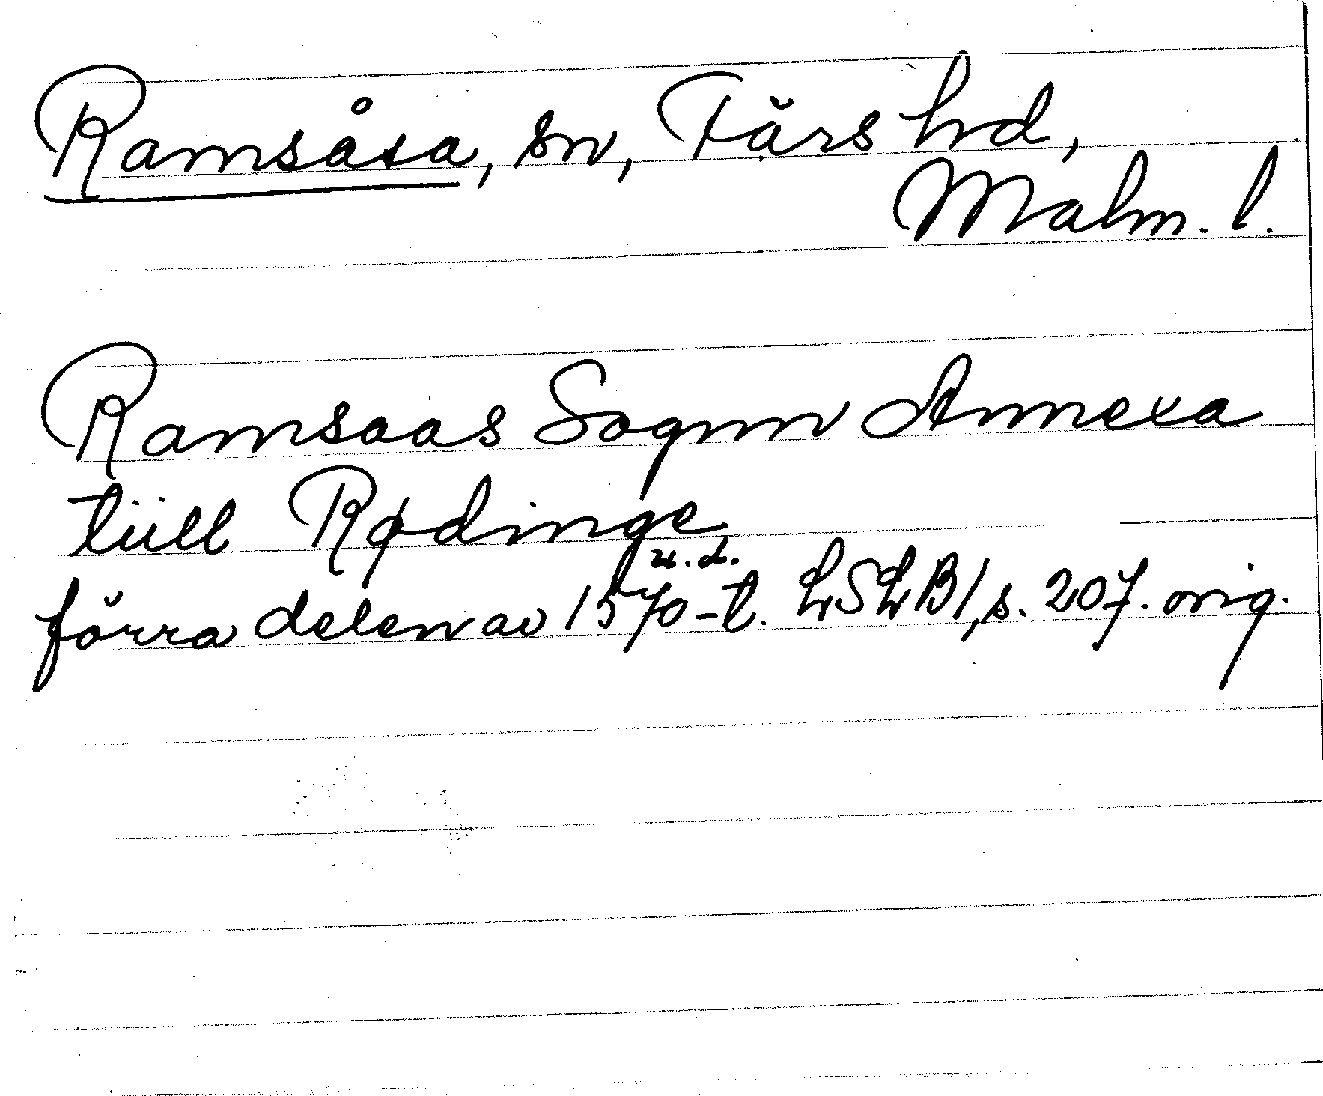 Ramsåsa, sn, Färs hd,
Malm. l.
Ramsaas Sognn Annexa
tiill Rødinge
u. d.
förra delen av 1570-t. LSLB 1, s. 207. orig.